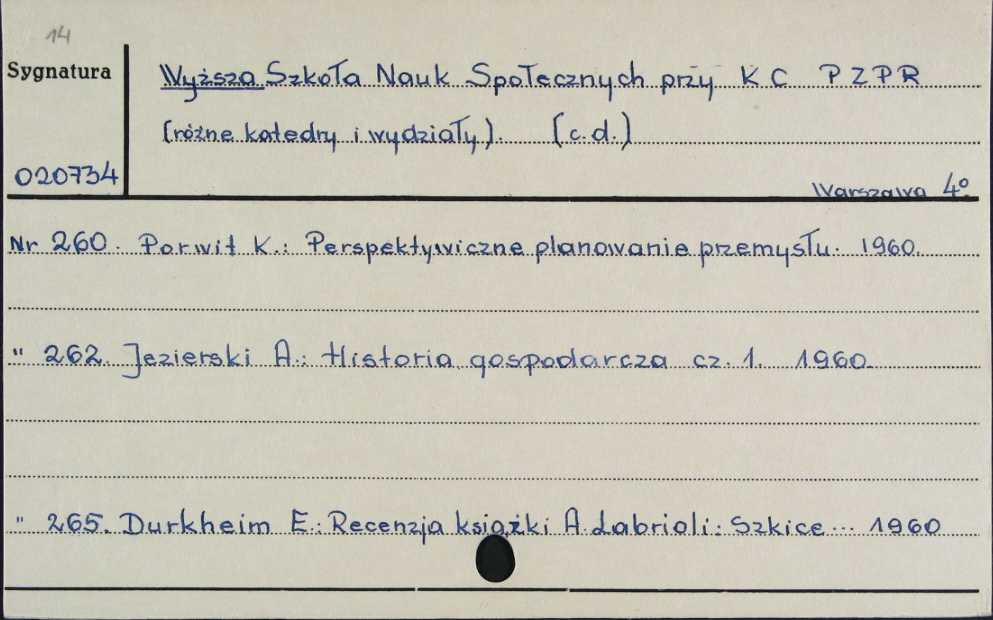 14
Sygnatura
Wyższa Szkoła Nauk Społecznych przy KC PZPR
(różne katedry i wydziały). (c.d.)
020734
Warszawa 4º
Nr 260. Porwit K.: Perspektywiczne planowanie przemysłu. 1960.
" 262. Jezierski A.: Historia gospodarcza cz. 1. 1960.
" 265. Durkheim E.: Recenzja książki A. Labrioli: Szkice... 1960